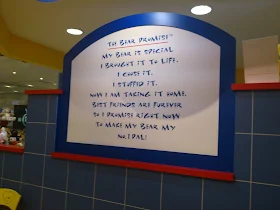 THE BEAR PROMISE™
MY BEAR IS SPECIAL
I BROUGHT IT TO LIFE.
I CHOSE IT.
I STUFFED IT.
NOW I AM TAKING IT HOME.
BEST FRIENDS ARE FUREVER
SO I PROMISE RIGHT NOW
TO MAKE MY BEAR MY
NO.1 PAL!